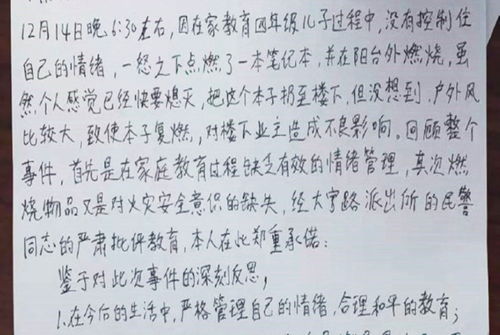 12月14日晚6:30左右,因在家教育四年级儿子过程中,没有控制住
自己的情绪,一怒之下点燃了一本笔记本,并在阳台外燃烧,虽
然个人感觉已经快要熄灭,把这个本子扔至楼下,但没想到,户外风
比较大,致使本子复燃,对楼下业主造成不良影响。回顾整个
事件,首先是在家庭教育过程缺乏有效的情绪管理,其次燃
烧物品又是对火灾安全意识的缺失,经大亨路派出所的民警
同志的严肃批评教育,本人在此郑重承诺:
鉴于对此次事件的深刻反思,
1.在今后的生活中,严格管理自己的情绪,合理和平的教育;